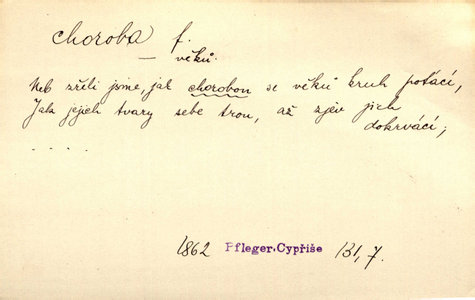 choroba f.
— věků.
Neb zřeli jsme, jak chorobou se věků kruh potácí,
Jak jejich tvary sebe trou, až zjev jich
dokrvácí;
. . . . .
1862 Pfleger, Cypřiše 131, 7.